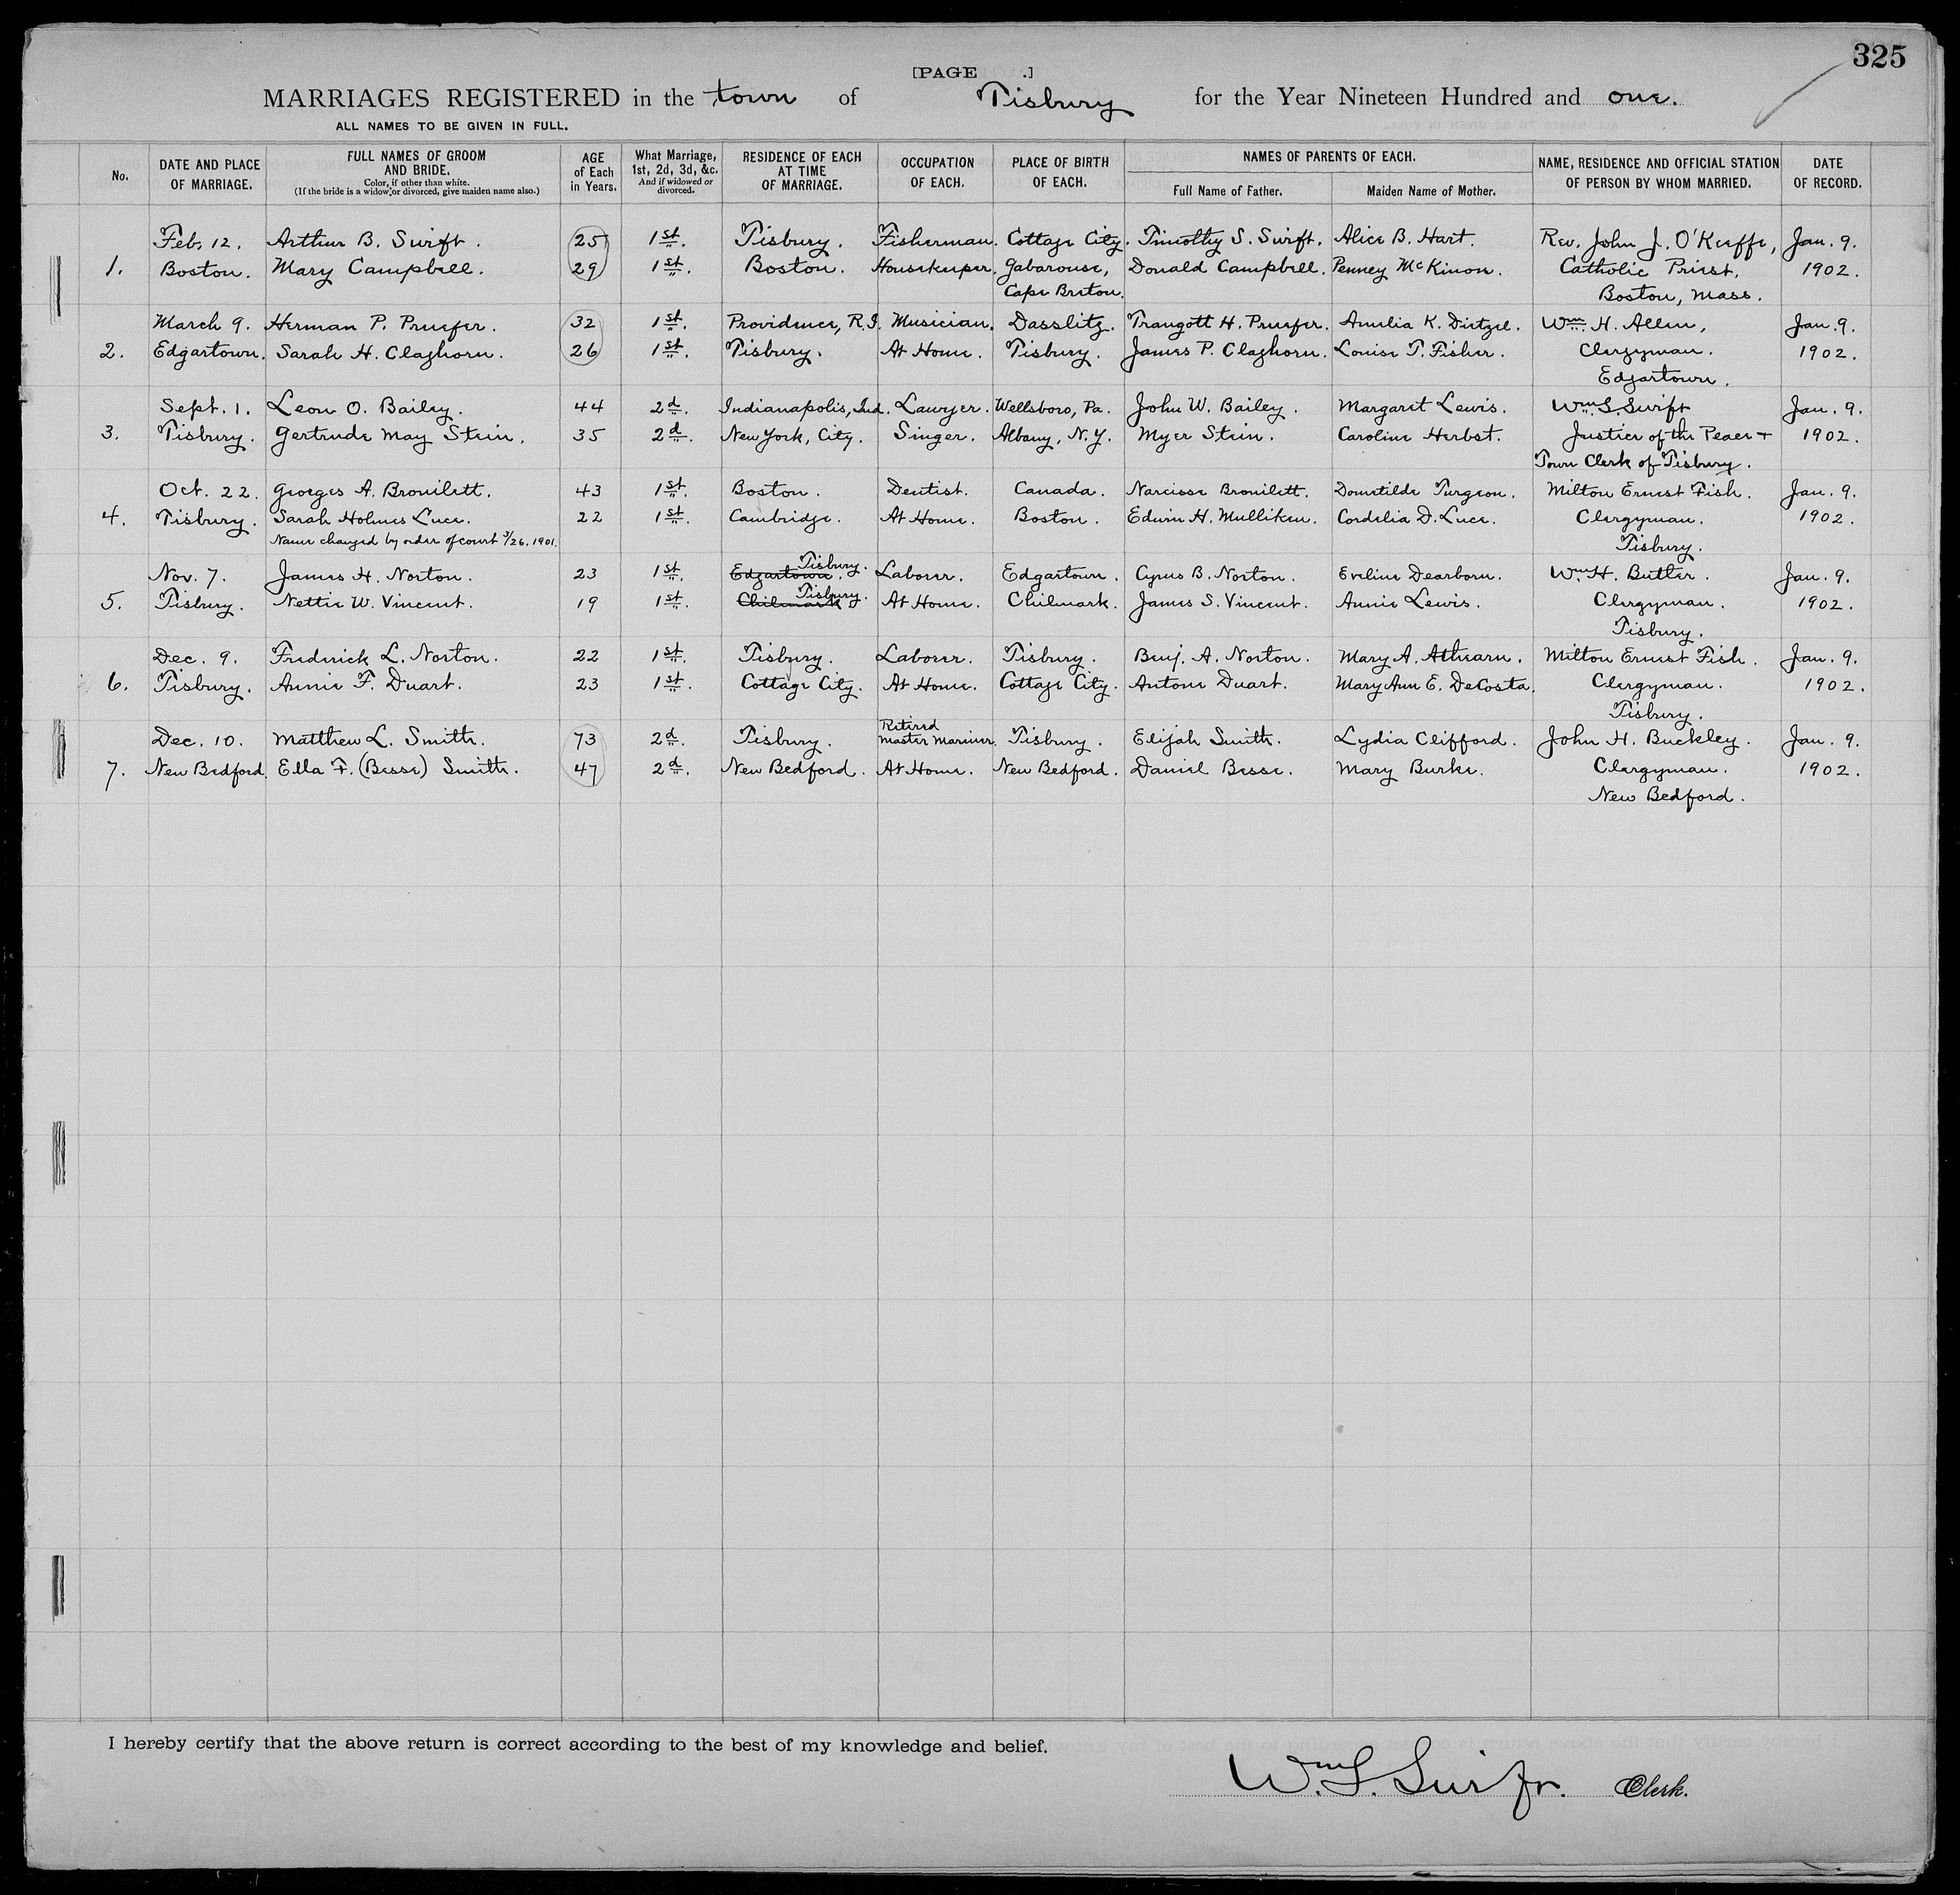 325
[PAGE .]
MARRIAGES REGISTERED in the town of Tisbury for the Year Nineteen Hundred and one.
ALL NAMES TO BE GIVEN IN FULL.
No. DATE AND PLACE OF MARRIAGE. FULL NAMES OF GROOM AND BRIDE. Color, if other than white. (If the bride is a widow or divorced, give maiden name also.) AGE of Each in Years. What Marriage, 1st, 2d, 3d, &c. And if widowed or divorced. RESIDENCE OF EACH AT TIME OF MARRIAGE. OCCUPATION OF EACH. PLACE OF BIRTH OF EACH. NAMES OF PARENTS OF EACH. Full Name of Father. Maiden Name of Mother. NAME, RESIDENCE AND OFFICIAL STATION OF PERSON BY WHOM MARRIED. DATE OF RECORD.
Feb. 12. Arthur B. Swift. 25 1st. Tisbury. Fisherman. Cottage City. Timothy S. Swift. Alice B. Hart. Rev. John J. O'Keeffe, Jan. 9.
1. Boston. Mary Campbell. 29 1st. Boston. Housekeeper. Gabarouse, Donald Campbell. Penney McKinon. Catholic Priest, 1902.
Cape Breton. Boston, Mass.
March 9. Herman P. Pruefer. 32 1st. Providence, R.I. Musician. Dasslitz. Traugott H. Pruefer. Amelia K. Dietzel. Wm. H. Allen, Jan. 9.
2. Edgartown. Sarah H. Claghorn. 26 1st. Tisbury. At Home. Tisbury. James P. Claghorn. Louise T. Fisher. Clergyman. 1902.
Edgartown.
Sept. 1. Leon O. Bailey. 44 2d. Indianapolis, Ind. Lawyer. Wellsboro, Pa. John W. Bailey. Margaret Lewis. Wm. S. Swift Jan. 9.
3. Tisbury. Gertrude May Stein. 35 2d. New York, City. Singer. Albany, N.Y. Myer Stein. Caroline Herbst. Justice of the Peace + 1902.
Town Clerk of Tisbury.
Oct. 22. Georges A. Brouilett. 43 1st. Boston. Dentist. Canada. Narcisse Brouilett. Domitilde Turgeon. Milton Ernest Fish. Jan. 9.
4. Tisbury. Sarah Holmes Luce. 22 1st. Cambridge. At Home. Boston. Edwin H. Mulliken. Cordelia D. Luce. Clergyman. 1902.
Name changed by order of court 3/26. 1901. Tisbury.
Nov. 7. James H. Norton. 23 1st. Edgartown. Tisbury. Laborer. Edgartown. Cyrus B. Norton. Eveline Dearborn. Wm. H. Butler. Jan. 9.
5. Tisbury. Nettie W. Vincent. 19 1st. Chilmark Tisbury. At Home. Chilmark. James S. Vincent. Annie Lewis. Clergyman. 1902.
Tisbury.
Dec. 9. Frederick L. Norton. 22 1st. Tisbury. Laborer. Tisbury. Benj. A. Norton. Mary A. Athearn. Milton Ernest Fish. Jan. 9.
6. Tisbury. Annie F. Duart. 23 1st. Cottage City. At Home. Cottage City. Antone Duart. Mary Ann E. DeCosta. Clergyman. 1902.
Tisbury.
Dec. 10. Matthew L. Smith. 73 2d. Tisbury. Retired Master Mariner. Tisbury. Elijah Smith. Lydia Clifford. John H. Buckley. Jan. 9.
7. New Bedford. Ella F. (Besse) Smith. 47 2d. New Bedford. At Home. New Bedford. Daniel Besse. Mary Burke. Clergyman. 1902.
New Bedford.
I hereby certify that the above return is correct according to the best of my knowledge and belief.
Wm. S. Swift. Clerk.